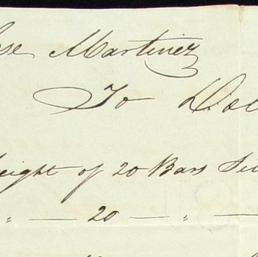 se Martinez
To Dol
eight of 20 Bars
„ — 20 — „ —